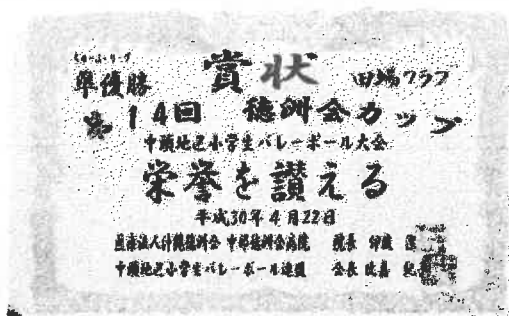 準優勝 賞状 田場クラブ
第14回 徳洲会カップ
中頭地区小学生バレーボール大会
栄誉を讃える
平成30年4月22日
医療法人沖縄徳洲会 中部徳洲会病院 院長 伊波 潔
中頭地区小学生バレーボール連盟 会長